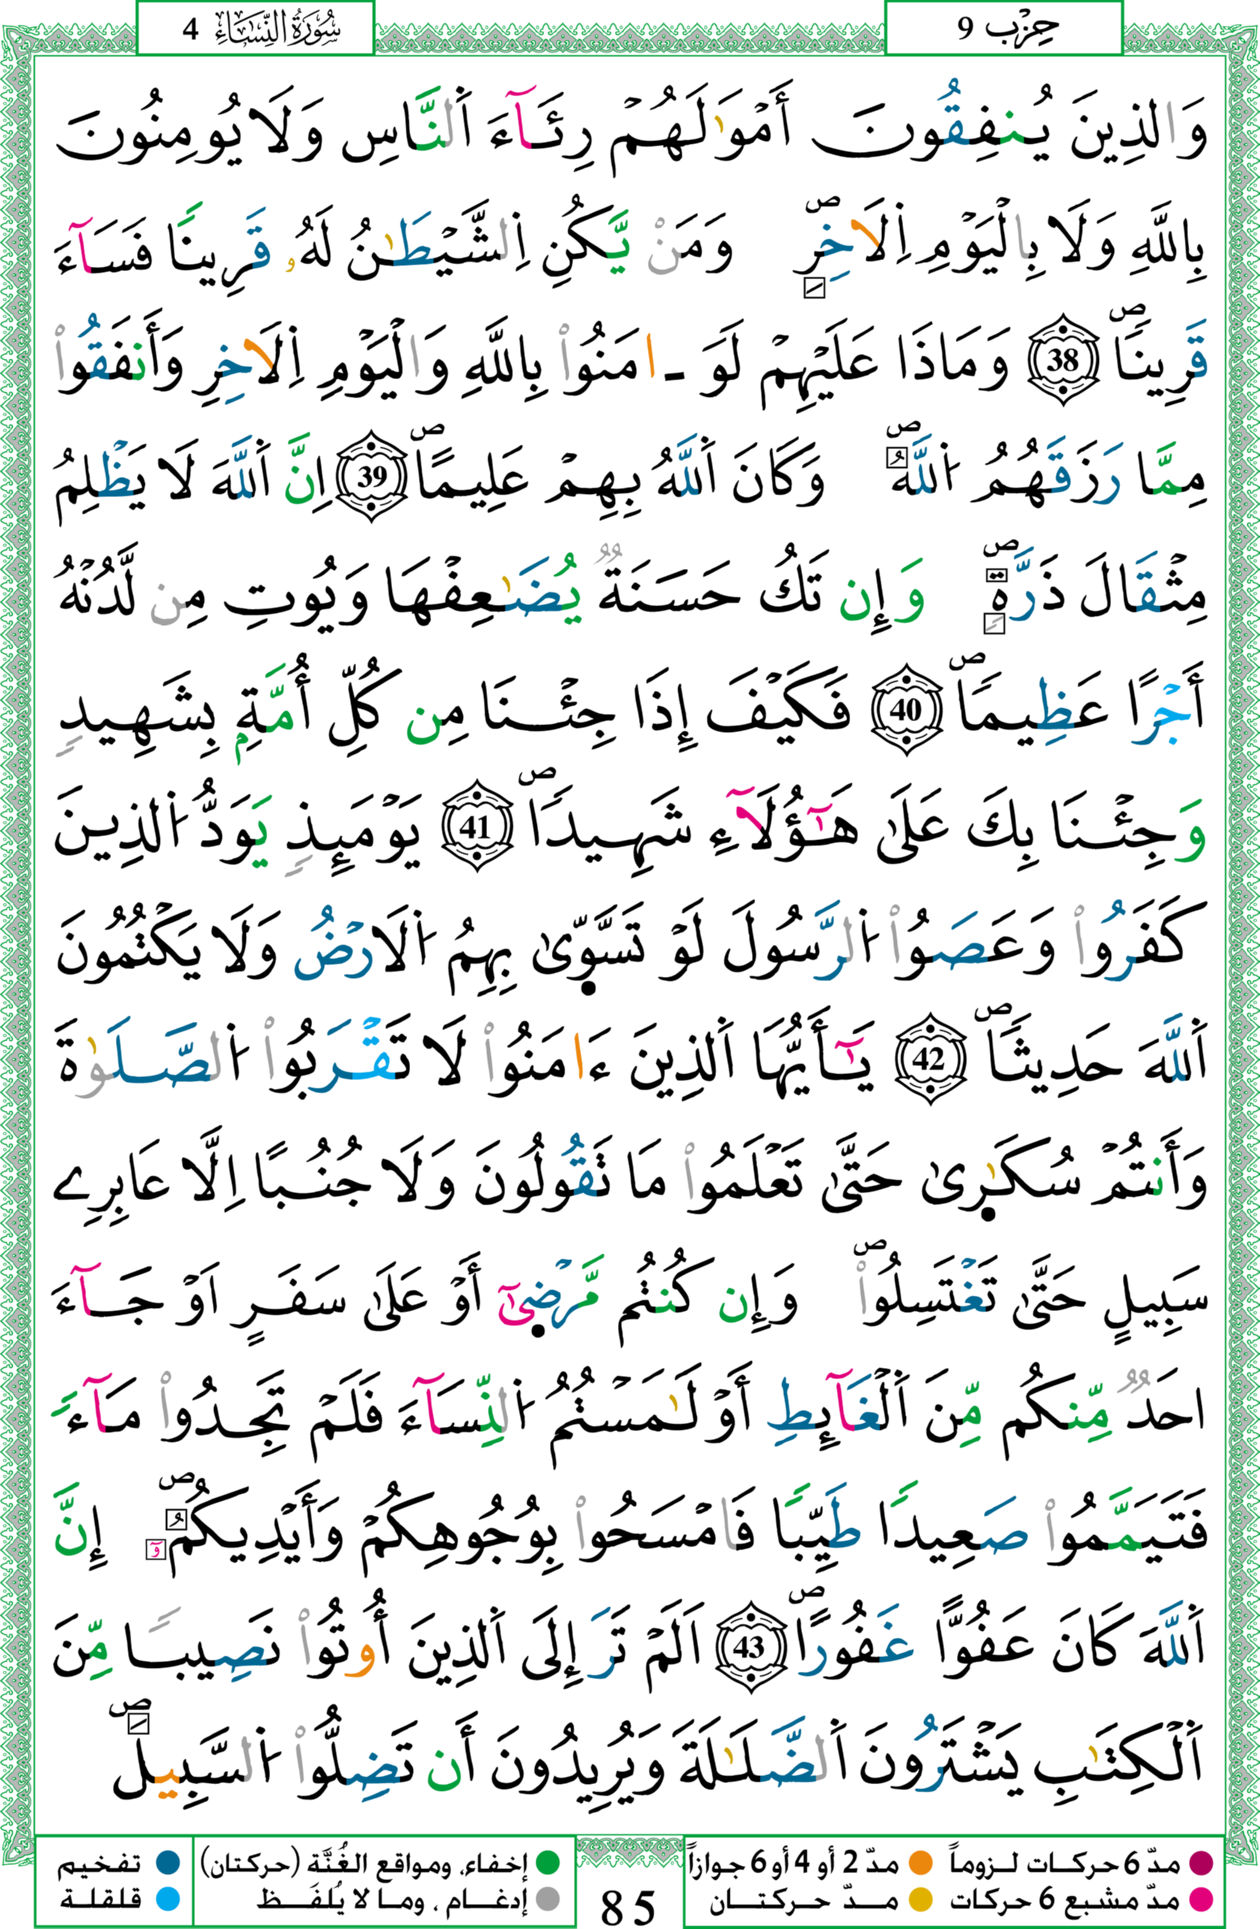 سُورَةُ النِّسَاءِ 4
حِزْب 9
وَالذِينَ يُنفِقُونَ أَمْوَٰلَهُمْ رِئَآءَ اَلنَّاسِ وَلَا يُومِنُونَ
بِاللَّهِ وَلَا بِالْيَوْمِ اِلَاخِرِ ۖ وَمَنْ يَّكُنِ اِلشَّيْطَٰنُ لَهُۥ قَرِينًا فَسَآءَ
قَرِينًا ۖ 38 وَمَاذَا عَلَيْهِمْ لَوَ ـ امَنُواْ بِاللَّهِ وَالْيَوْمِ اِلَاخِرِ وَأَنفَقُواْ
مِمَّا رَزَقَهُمُ اُللَّهُ ۖ وَكَانَ اَللَّهُ بِهِمْ عَلِيمًا ۖ 39 اِنَّ اَللَّهَ لَا يَظْلِمُ
مِثْقَالَ ذَرَّةٍ ۖ وَإِن تَكُ حَسَنَةٌ يُضَٰعِفْهَا وَيُوتِ مِن لَّدُنْهُ
أَجْرًا عَظِيمًا ۖ 40 فَكَيْفَ إِذَا جِئْنَا مِن كُلِّ أُمَّةٍ بِشَهِيدٍ
وَجِئْنَا بِكَ عَلَىٰ هَٰٓؤُلَآءِ شَهِيدًا ۖ 41 يَوْمَئِذٍ يَوَدُّ اُلذِينَ
كَفَرُواْ وَعَصَوُاْ اُلرَّسُولَ لَوْ تَسَّوّ۪ىٰ بِهِمُ اُلَارْضُ وَلَا يَكْتُمُونَ
اَللَّهَ حَدِيثًا ۖ 42 يَٰٓأَيُّهَا اَلذِينَ ءَامَنُواْ لَا تَقْرَبُواْ اُلصَّلَوٰةَ
وَأَنتُمْ سُكَٰر۪ىٰ حَتَّىٰ تَعْلَمُواْ مَا تَقُولُونَ وَلَا جُنُبًا اِلَّا عَابِرِے
سَبِيلٍ حَتَّىٰ تَغْتَسِلُواْ ۖ وَإِن كُنتُم مَّرْض۪ىٰٓ أَوْ عَلَىٰ سَفَرٍ اَوْ جَآءَ
احَدٌ مِّنكُم مِّنَ اَلْغَآئِطِ أَوْ لَٰمَسْتُمُ اُلنِّسَآءَ فَلَمْ تَجِدُواْ مَآءً
فَتَيَمَّمُواْ صَعِيدًا طَيِّبًا فَامْسَحُواْ بِوُجُوهِكُمْ وَأَيْدِيكُمُۥٓ ۖ إِنَّ
اَللَّهَ كَانَ عَفُوًّا غَفُورًا ۖ 43 اَلَمْ تَرَ إِلَى اَلذِينَ أُوتُواْ نَصِيبًا مِّنَ
اَلْكِتَٰبِ يَشْتَرُونَ اَلضَّلَٰلَةَ وَيُرِيدُونَ أَن تَضِلُّواْ اُلسَّبِيلَ ۖ
مدّ 6 حركات لـزوماً
مدّ 2 أو 4 أو 6 جوازاً
مدّ مشبع 6 حركات
مــدّ حركتــان
85
إخفاء، ومواقع الغُنَّة (حركتان)
تفخيم
إدغــام ، ومـا لا يُلفَـظ
قلقلة